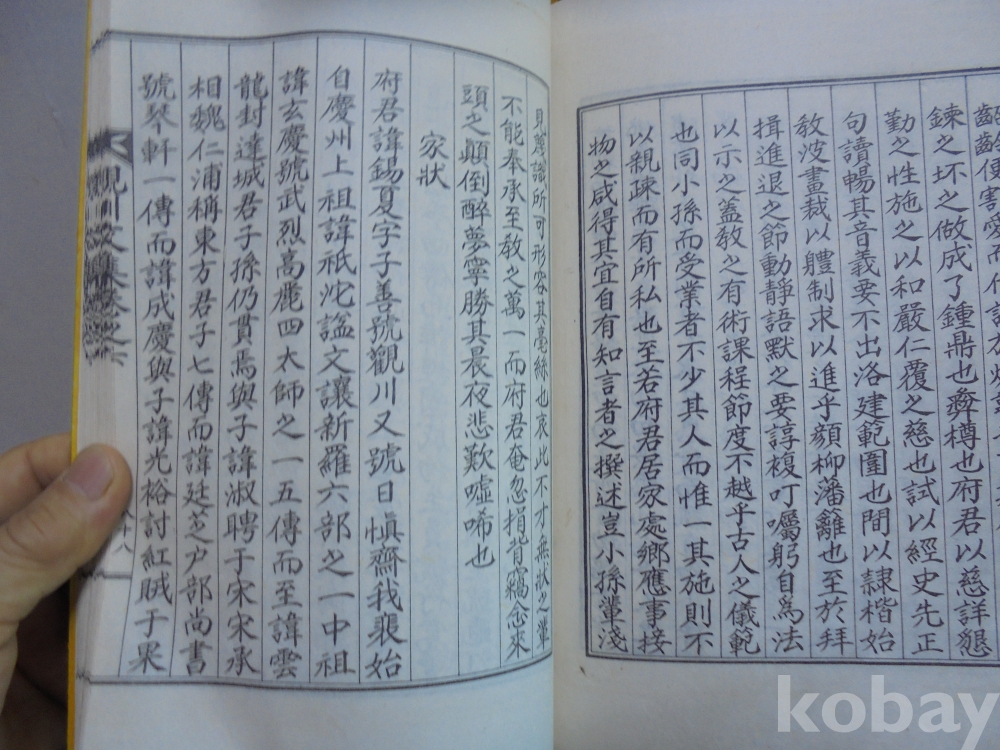 齠齡便害愛而作詩
鍊之坏之做成了鍾鼎也彝樽也府君以慈詳懇
勤之性施之以和嚴仁覆之慈也試以經史先正
句讀暢其音義要不出洛建範圍也間以隷楷始
敎波畫裁以軆制求以進乎顔柳藩籬也至於拜
揖進退之節動靜語默之要諄複叮囑躬自爲法
以示之蓋敎之有術課程節度不越乎古人之儀範
也同小孫而受業者不少其人而惟一其施則不
以親疎而有所私也至若府君居家處鄉應事接
物之咸得其宜自有知言者之撰述豈小孫輩淺
見蔑識所可形容其毫絲也哀此不才無狀之輩
不能奉承至敎之萬一而府君奄忽捐背竊念來
頭之顚倒醉夢寧勝其晨夜悲歎噓唏也
家狀
府君諱錫夏字子善號觀川又號日愼齋我裴始
自慶州上祖諱祇沱諡文讓新羅六部之一中祖
諱玄慶號武烈高麗四太師之一五傳而至諱雲
龍封達城君子孫仍貫焉與子諱淑聘于宋宋承
相魏仁浦稱東方君子七傳而諱廷芝户部尚書
號琴軒一傳而諱成慶與子諱光裕討紅賊于果
觀川文集卷之六
kobay